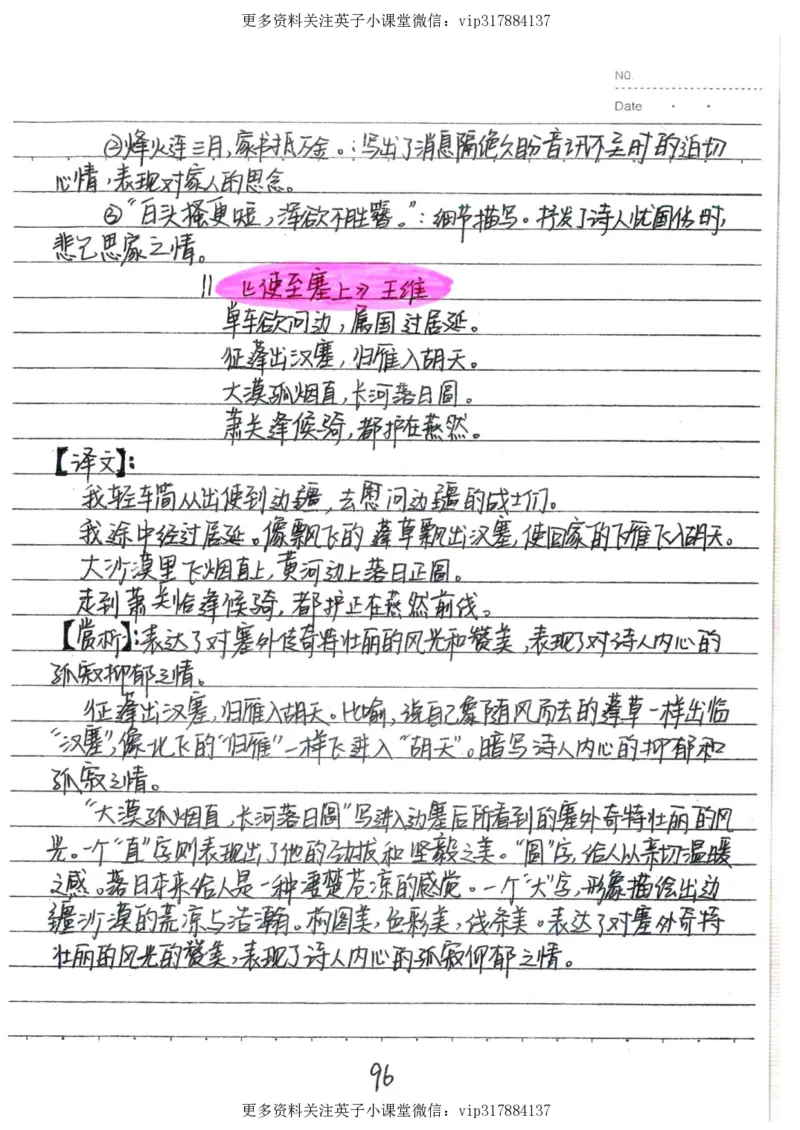 更多资料关注英子小课堂微信：vip317884137
NO.
Date
②烽火连三月，家书抵万金。：写出了消息隔绝久盼音讯不至时的迫切
心情，表现对家人的思念。
③“白头搔更短，浑欲不胜簪。”：细节描写。抒发了诗人忧国伤时，
悲己思家之情。
11 《使至塞上》王维
单车欲问边，属国过居延。
征蓬出汉塞，归雁入胡天。
大漠孤烟直，长河落日圆。
萧关逢候骑，都护在燕然。
【译文】：
我轻车简从出使到边疆，去慰问边疆的战士们。
我途中经过居延。像飘飞的蓬草飘出汉塞，使回家的飞雁飞入胡天。
大沙漠里飞烟直上，黄河边上落日正圆。
走到萧关恰逢候骑，都护正在燕然前线。
【赏析】：表达了对塞外传奇特壮丽的风光和赞美，表现了对诗人内心的
孤寂抑郁之情。
征蓬出汉塞，归雁入胡天。比喻，说自己象随风而去的蓬草一样出临
“汉塞”，像北飞的“归雁”一样飞进入“胡天”。暗写诗人内心的抑郁和
孤寂之情。
“大漠孤烟直，长河落日圆”写进入边塞后所看到的塞外奇特壮丽的风
光。一个“直”字则表现出了他的劲拔和坚毅之美。“圆”字，给人以亲切温暖
之感。落日本来给人是一种凄楚苍凉的感觉。一个“大”字，形象描绘出边
疆沙漠的荒凉与浩瀚。构图美，色彩美，线条美。表达了对塞外奇特
壮丽的风光的赞美，表现了诗人内心的孤寂抑郁之情。
96
更多资料关注英子小课堂微信：vip317884137